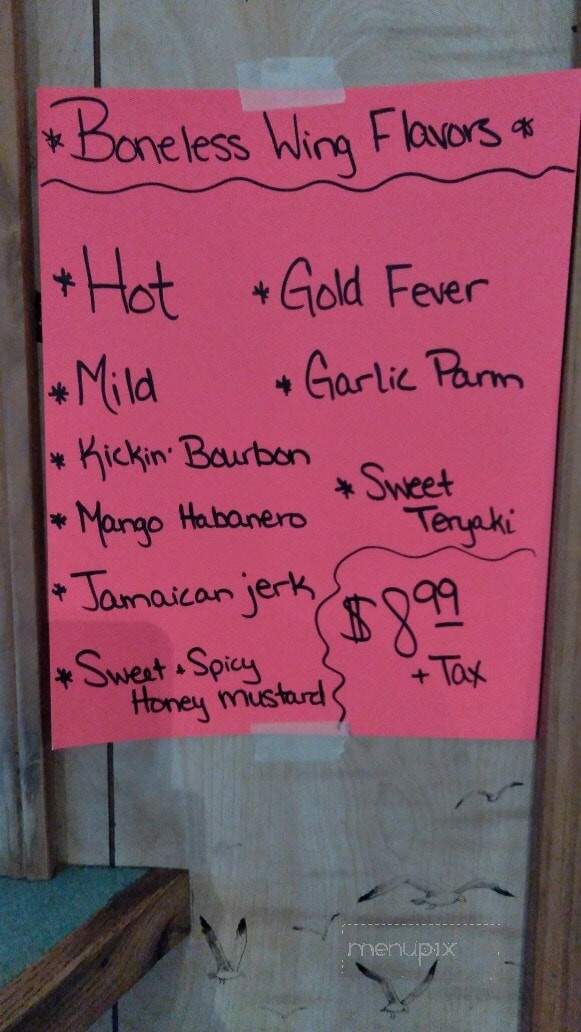 * Boneless Wing Flavors *
* Hot
* Gold Fever
* Mild
* Garlic Parm
* Kickin' Bourbon
* Mango Habanero
* Sweet
Teryaki
* Jamaican jerk
* Sweet & Spicy
Honey mustard
$8.99
+ Tax
menupix